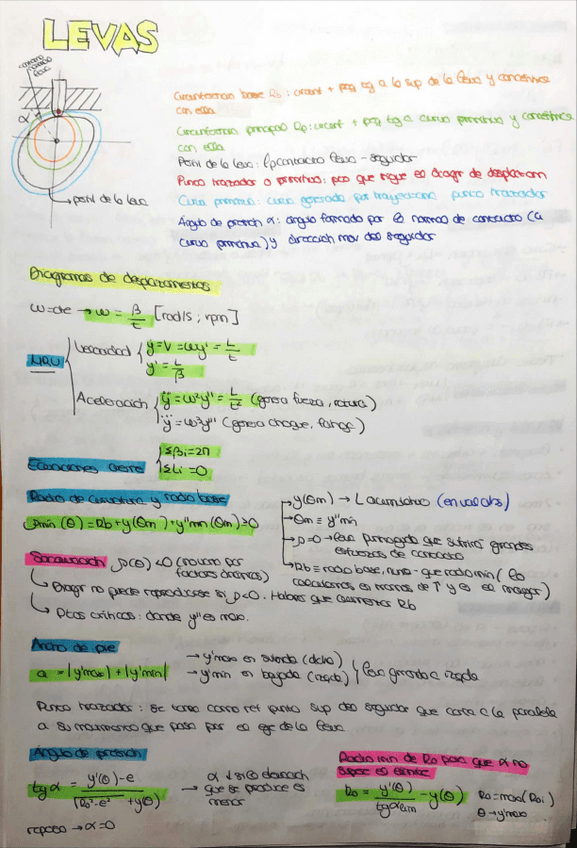 LEVAS
α
Circunferencia base Rb: circunf + peq tg a la sup de la leva y concéntrica
con ella
Circunferencia principal Rp: circunf + peq tg a curva primitiva y concéntrica
con ella
Perfil de la leva: contacto leva - seguidor
Punto trazador o primitivo: pto que sigue el diagr de desplazam
Curva primitiva: curva generada por trayectoria punto trazador
Ángulo de presión α: ángulo formado por la normal de contacto (a
curva primitiva) y dirección mov del seguidor
perfil de la leva
Diagramas de desplazamientos
ω=cte → ω = β/t [rad/s ; rpm]
MRU
Velocidad ẏ=V=ωy' = L/t
y' = L/β
Aceleración ÿ=ω²y'' = L/t² (genera fuerza, rotura)
y⃛=ω³y''' (genera choque, fatiga)
Ecuaciones cierre
Σβi=2π
ΣLi=0
Radio de curvatura y radio base
ρmin(θ)=Rb+y(θm)+y''min(θm)≥0
y(θm) → L acumulativo (en valores)
θm ≡ y''min
ρ=0 → leva puntiaguda que sufrirá grandes
esfuerzos de contacto
Rb ≡ radio base, mín (Rb
calculamos en tramos de T y es el mayor)
Socavación ρ(θ)<0 (no
factores dinámicos)
Diagr no puede reproducirse si ρ<0. Habrá que aumentar Rb
Ptos críticos: donde y'' es max.
Ancho de pie
a = |y'max| + |y'min|
→ y'max en subida (dcha)
→ y'min en bajada (izqda)
leva girando a izqda
Punto trazador: se toma como ref punto sup del seguidor que corta a la paralela
a su movimiento que pasa por el eje de la leva.
Ángulo de presión
tg α = y'(θ)-e / √(Ro²-e²) + y(θ)
→ α ↓ si
que se produce es
menor
reposo → α=0
Radio mín de Ro para que α no
supere el límite
Ro = y'(θ)/tgαlim - y(θ)
Ro=max(Roi)
θ → y'max